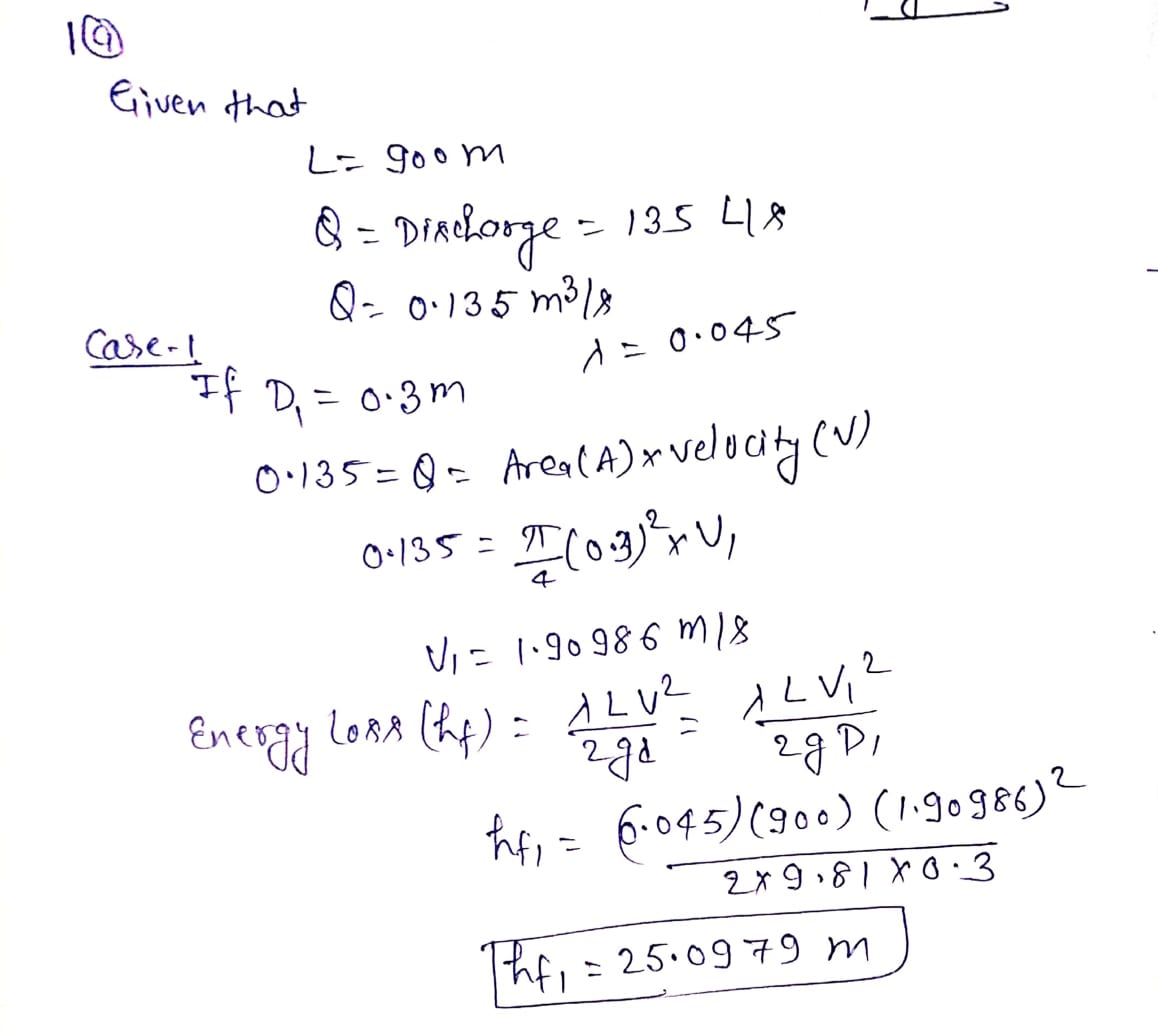 1(a)
Given that
L = 900 m
Q = Discharge = 135 L/s
Q = 0.135 m³/s
λ = 0.045
Case-1
If D₁ = 0.3 m
0.135 = Q = Area(A) × velocity (V)
0.135 = π/4 (0.3)² × V₁
V₁ = 1.90986 m/s
Energy loss (hf) = λLV²/2gd = λLV₁²/2gD₁
hf₁ = (0.045)(900) (1.90986)² / 2×9.81×0.3
hf₁ = 25.0979 m